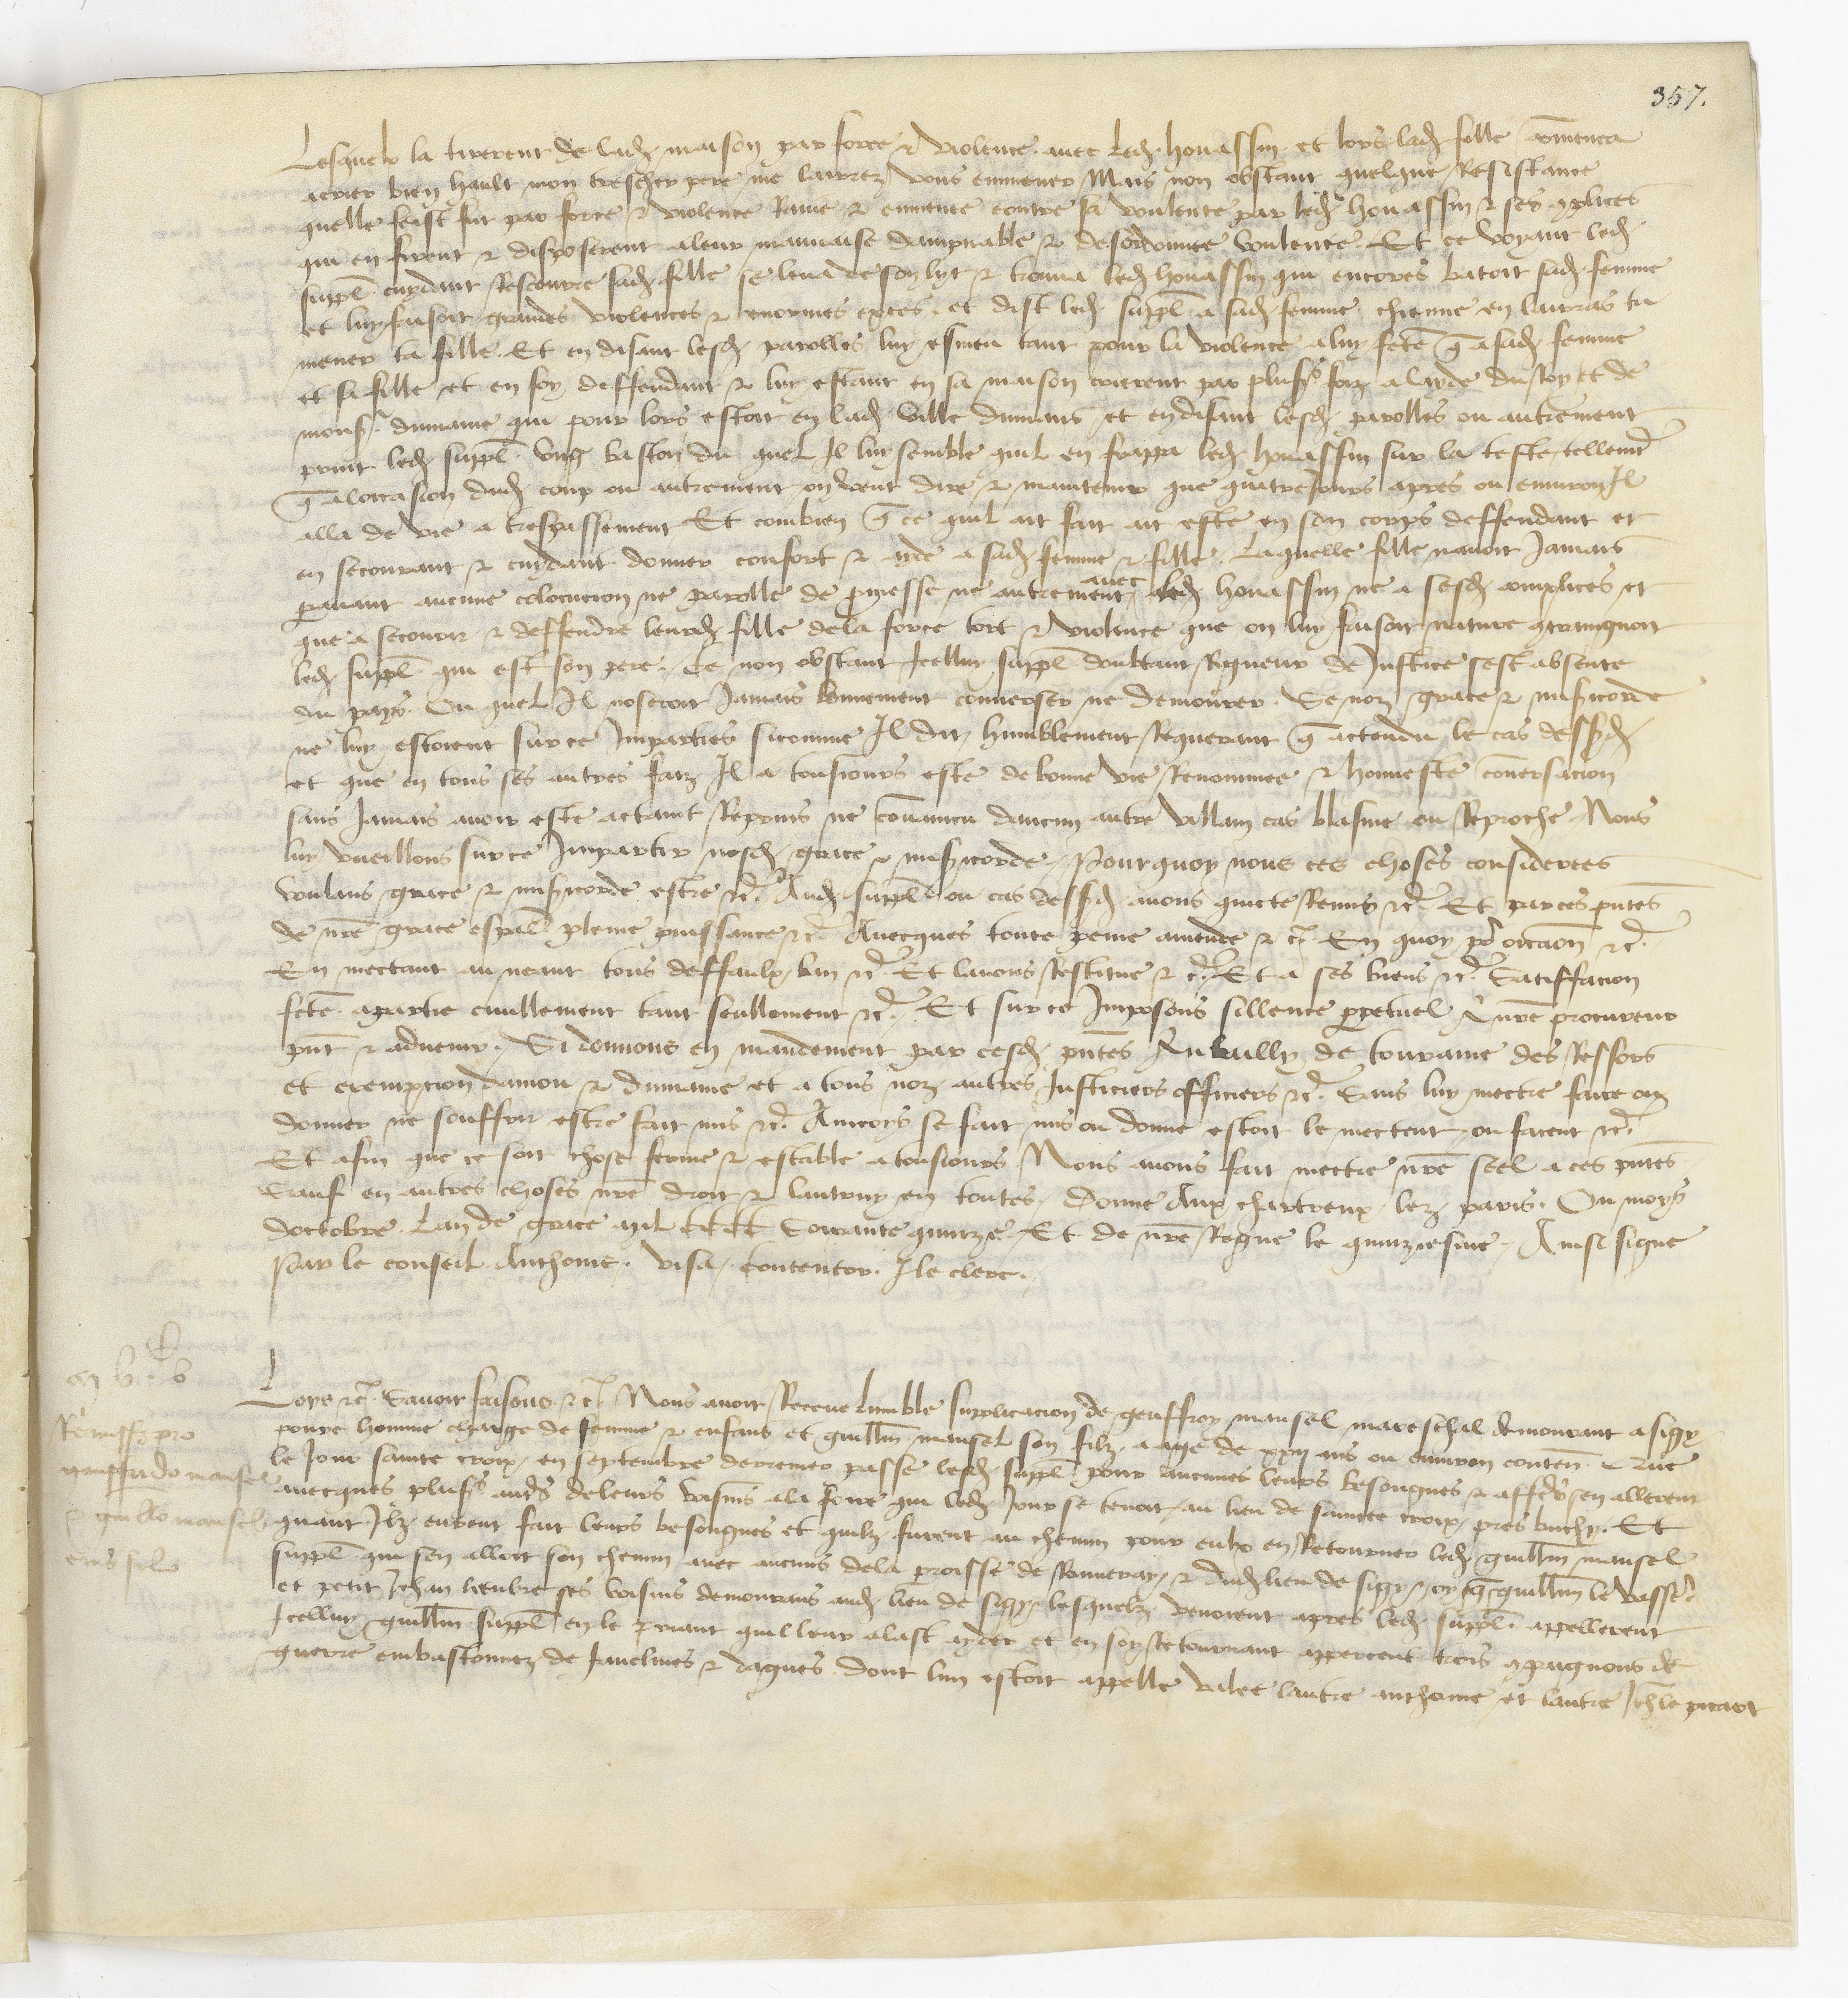 357.
Lesquelz la tirerent de lad. maison par force & violence avec led. houassin et lors lad. fille commenca
a crier bien hault mon trescher pere me lairrez vous emmener Mais non obstant quelque Resistance
quelle feist fut par force & violence Ravie & emmenee contre sa voulente par led. houassin & ses complices
qui en firent & disposerent a leur mauvaise dampnable & desordonnee voulente. Et ce voyant led.
suppl. cuydant Rescourre sad. fille se leva de son lyt & trouva led. houassin qui encores batoit sad. femme
et luy faisoit grandes violences & enormes exces. et dist led. suppl. a sad. femme. chienne en lairras tu
mener ta fille. Et en disant lesd. parolles luy esmeu tant pour la violence a luy fcte q a sad. femme
et sa fille et en soy deffendant & luy estant en sa maison crierent par plus. foiz a layde du Roy et de
mons. du maine qui pour lors estoit en lad. ville du mans et en disant lesd. parolles ou autrement
print led. suppl. ung baston du quel Il luy semble quil en frappa led. houassin sur la teste tellemt
q a loccasion dud. coup ou autrement on veut dire & maintenir que quatre Jours apres ou environ Il
alla de vie a trespassement Et combien q ce quil ait fait ait este en son corps deffendant et
en secourant & cuydant donner confort & ayde a sad. femme & fille. Laquelle fille navoit Jamais
paravant aucune colocucion ne parolle de promesse ne autrement avec led. houassin ne a sesd. complices et
que a secourir & deffendre leurd. fille de la force tort & violence que on luy faisoit nature contraignoit
led. suppl. qui est son pere. Ce non obstant Icelluy suppl. doubtant Rigueur de Justice sest absente
du pays. Ou quel Il noseroit Jamais bonnement converser ne demourer. Se noz grace & misericorde
ne luy estoient sur ce Imparties sicomme Il dit humblement Requerant q actendu le cas dessusd.
et que en tous ses autres faiz Il a tousiours este de bonne vie Renommee & honneste conversacion
sans Jamais avoir este actaint Reprins ne convaincu daucun autre villain cas blasme ou Reproche Nous
luy vueillons sur ce Impartir nosd. grace & misericorde. Pour quoy nous ces choses considerees
voulans grace & misericorde estre &c. Aud. suppl. ou cas dessusd. avons quicte Remis &c. Et par ces pntes
de nre grace espal. pleine puissance &c. Avecques toute peine amende & c. En quoy pr occaon &c.
En mectant au neant tous deffaulx ban &c. Et lavons Restitue & c. Et a ses biens &c. Satiffacion
fcte a partie civillement tant seullement &c. Et sur ce Imposons sillence perpetuel A nre procureur
pnt & advenir. Si donnons en mandement par cesd. pntes Au bailly de touraine des Ressors
et exempcion danjou & du maine et a tous noz autres Justiciers officiers &c. Sans luy mectre faire ou
donner ne souffrir estre fait mis &c. Aincoys se fait mis ou donne estoit le mectent ou facent &c.
Et afin que ce soit chose ferme & estable a tousiours Nous avons fait mectre nre seel a ces pntes
Sauf en autres choses nre droit & lautruy en toutes. Donne Aux chartreux lez paris. Ou moys
doctobre. Lan de grace mil CCCC Soixante quinze. Et de nre Regne le quinziesme. Ainsi signe
Par le conseil. Anthoine. visa. Contentor. J le clerc.
Remiss. pro
gauffrido mansel
& guillo mansel
eius filio
Loys &c. Savoir faisons &c. Nous avoir Receue lumble supplicacion de geuffroy mansel mareschal demourant a sigy
povre homme charge de femme & enfans et guillm mansel son filz aage de xxii ans ou environ conten. Que
le Jour saincte croix en septembre derrenier passe lesd. suppl. pour aucunes leurs besongnes & affres sen allerent
avecques plus. autrs de leurs voisins a la foire qui led. Jour se tenoit au lieu de saincte croix pres buchy. Et
quant Ilz eurent fait leurs besongnes et quilz furent au chemin pour eulx en Retourner led. guillm mansel
suppl. qui sen alloit son chemin avec aucuns de la paroisse de Ronneray & dud. lieu de sigy oy q guillm le vasse
et petit Jehan lieubre ses voisins demourans aud. lieu de sigy lesquelz venoient apres led. suppl. appellerent
Icelluy guillm suppl. en le priant quil leur alast ayder et en soy Retournant apperceut trois compaignons de
guerre embastonnez de Javelines & dagues dont lun estoit appelle valee lautre anthoine et lautre Jeh le picart